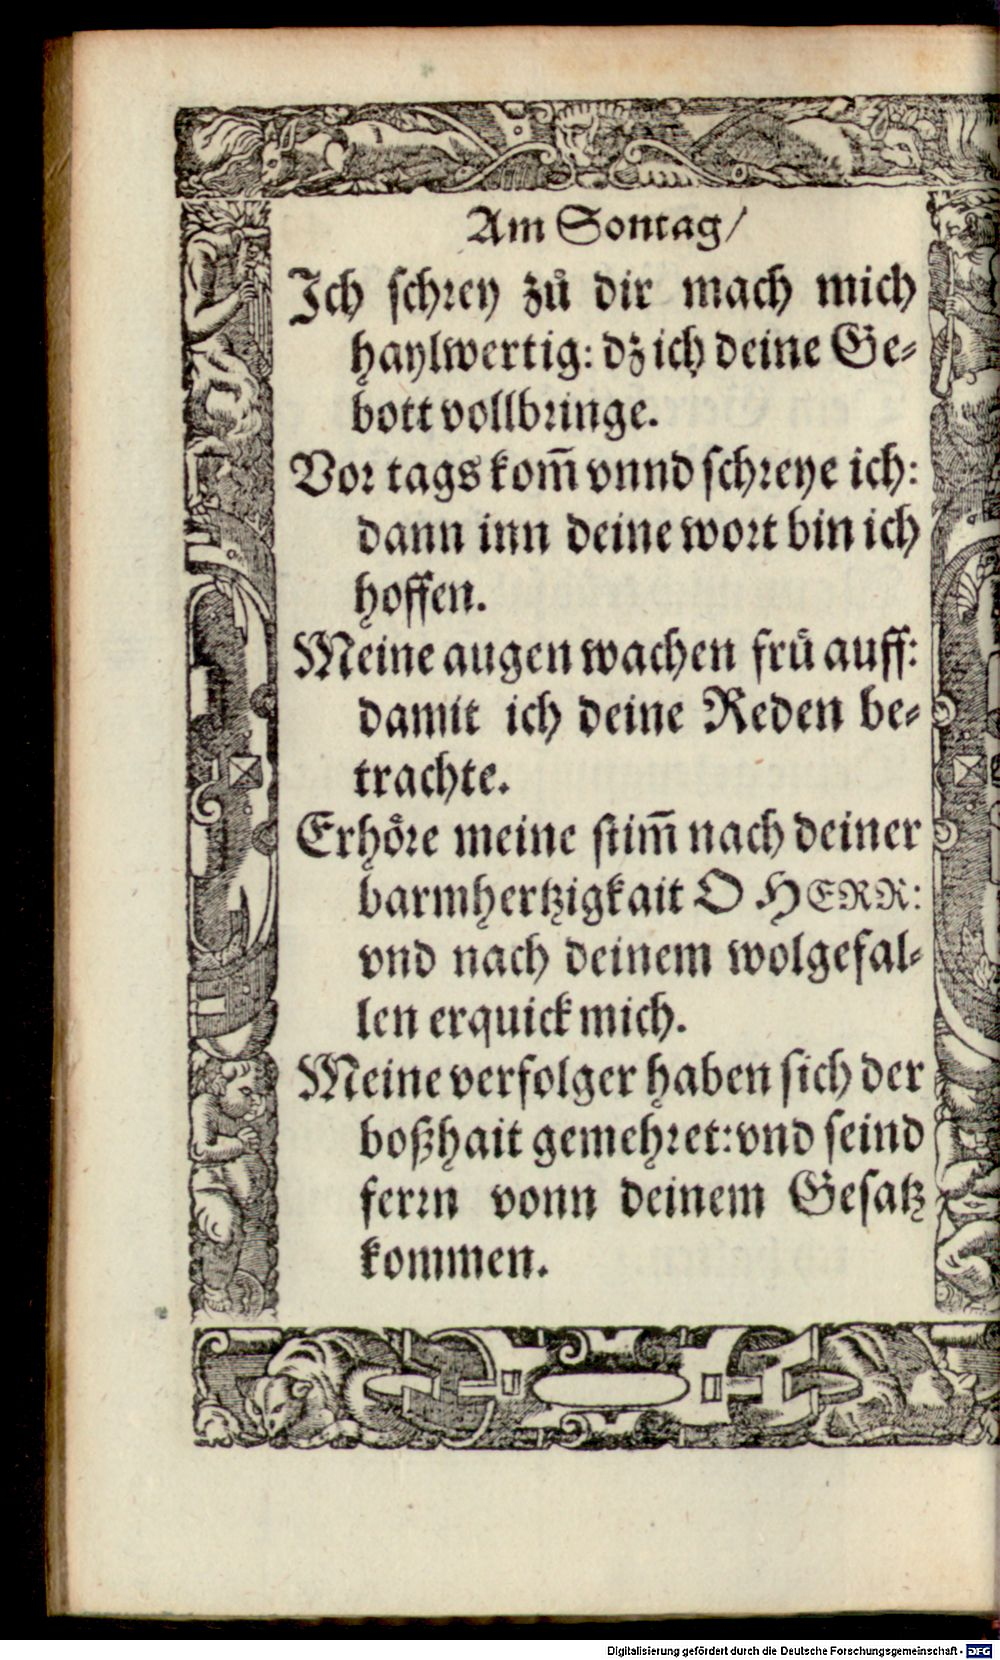 Am Sontag/
Ich schrey zů dir mach mich
haylwertig: dz ich deine Ge-
bott vollbringe.
Vor tags kom̄ vnnd schreye ich:
dann inn deine wort bin ich
hoffen.
Meine augen wachen frů auff:
damit ich deine Reden be-
trachte.
Erhöre meine stim̄ nach deiner
barmhertzigkait O HERR:
vnd nach deinem wolgefal-
len erquick mich.
Meine verfolger haben sich der
boßhait gemehret: vnd seind
ferrn vonn deinem Gesatz
kommen.
Digitalisierung gefördert durch die Deutsche Forschungsgemeinschaft - DFG